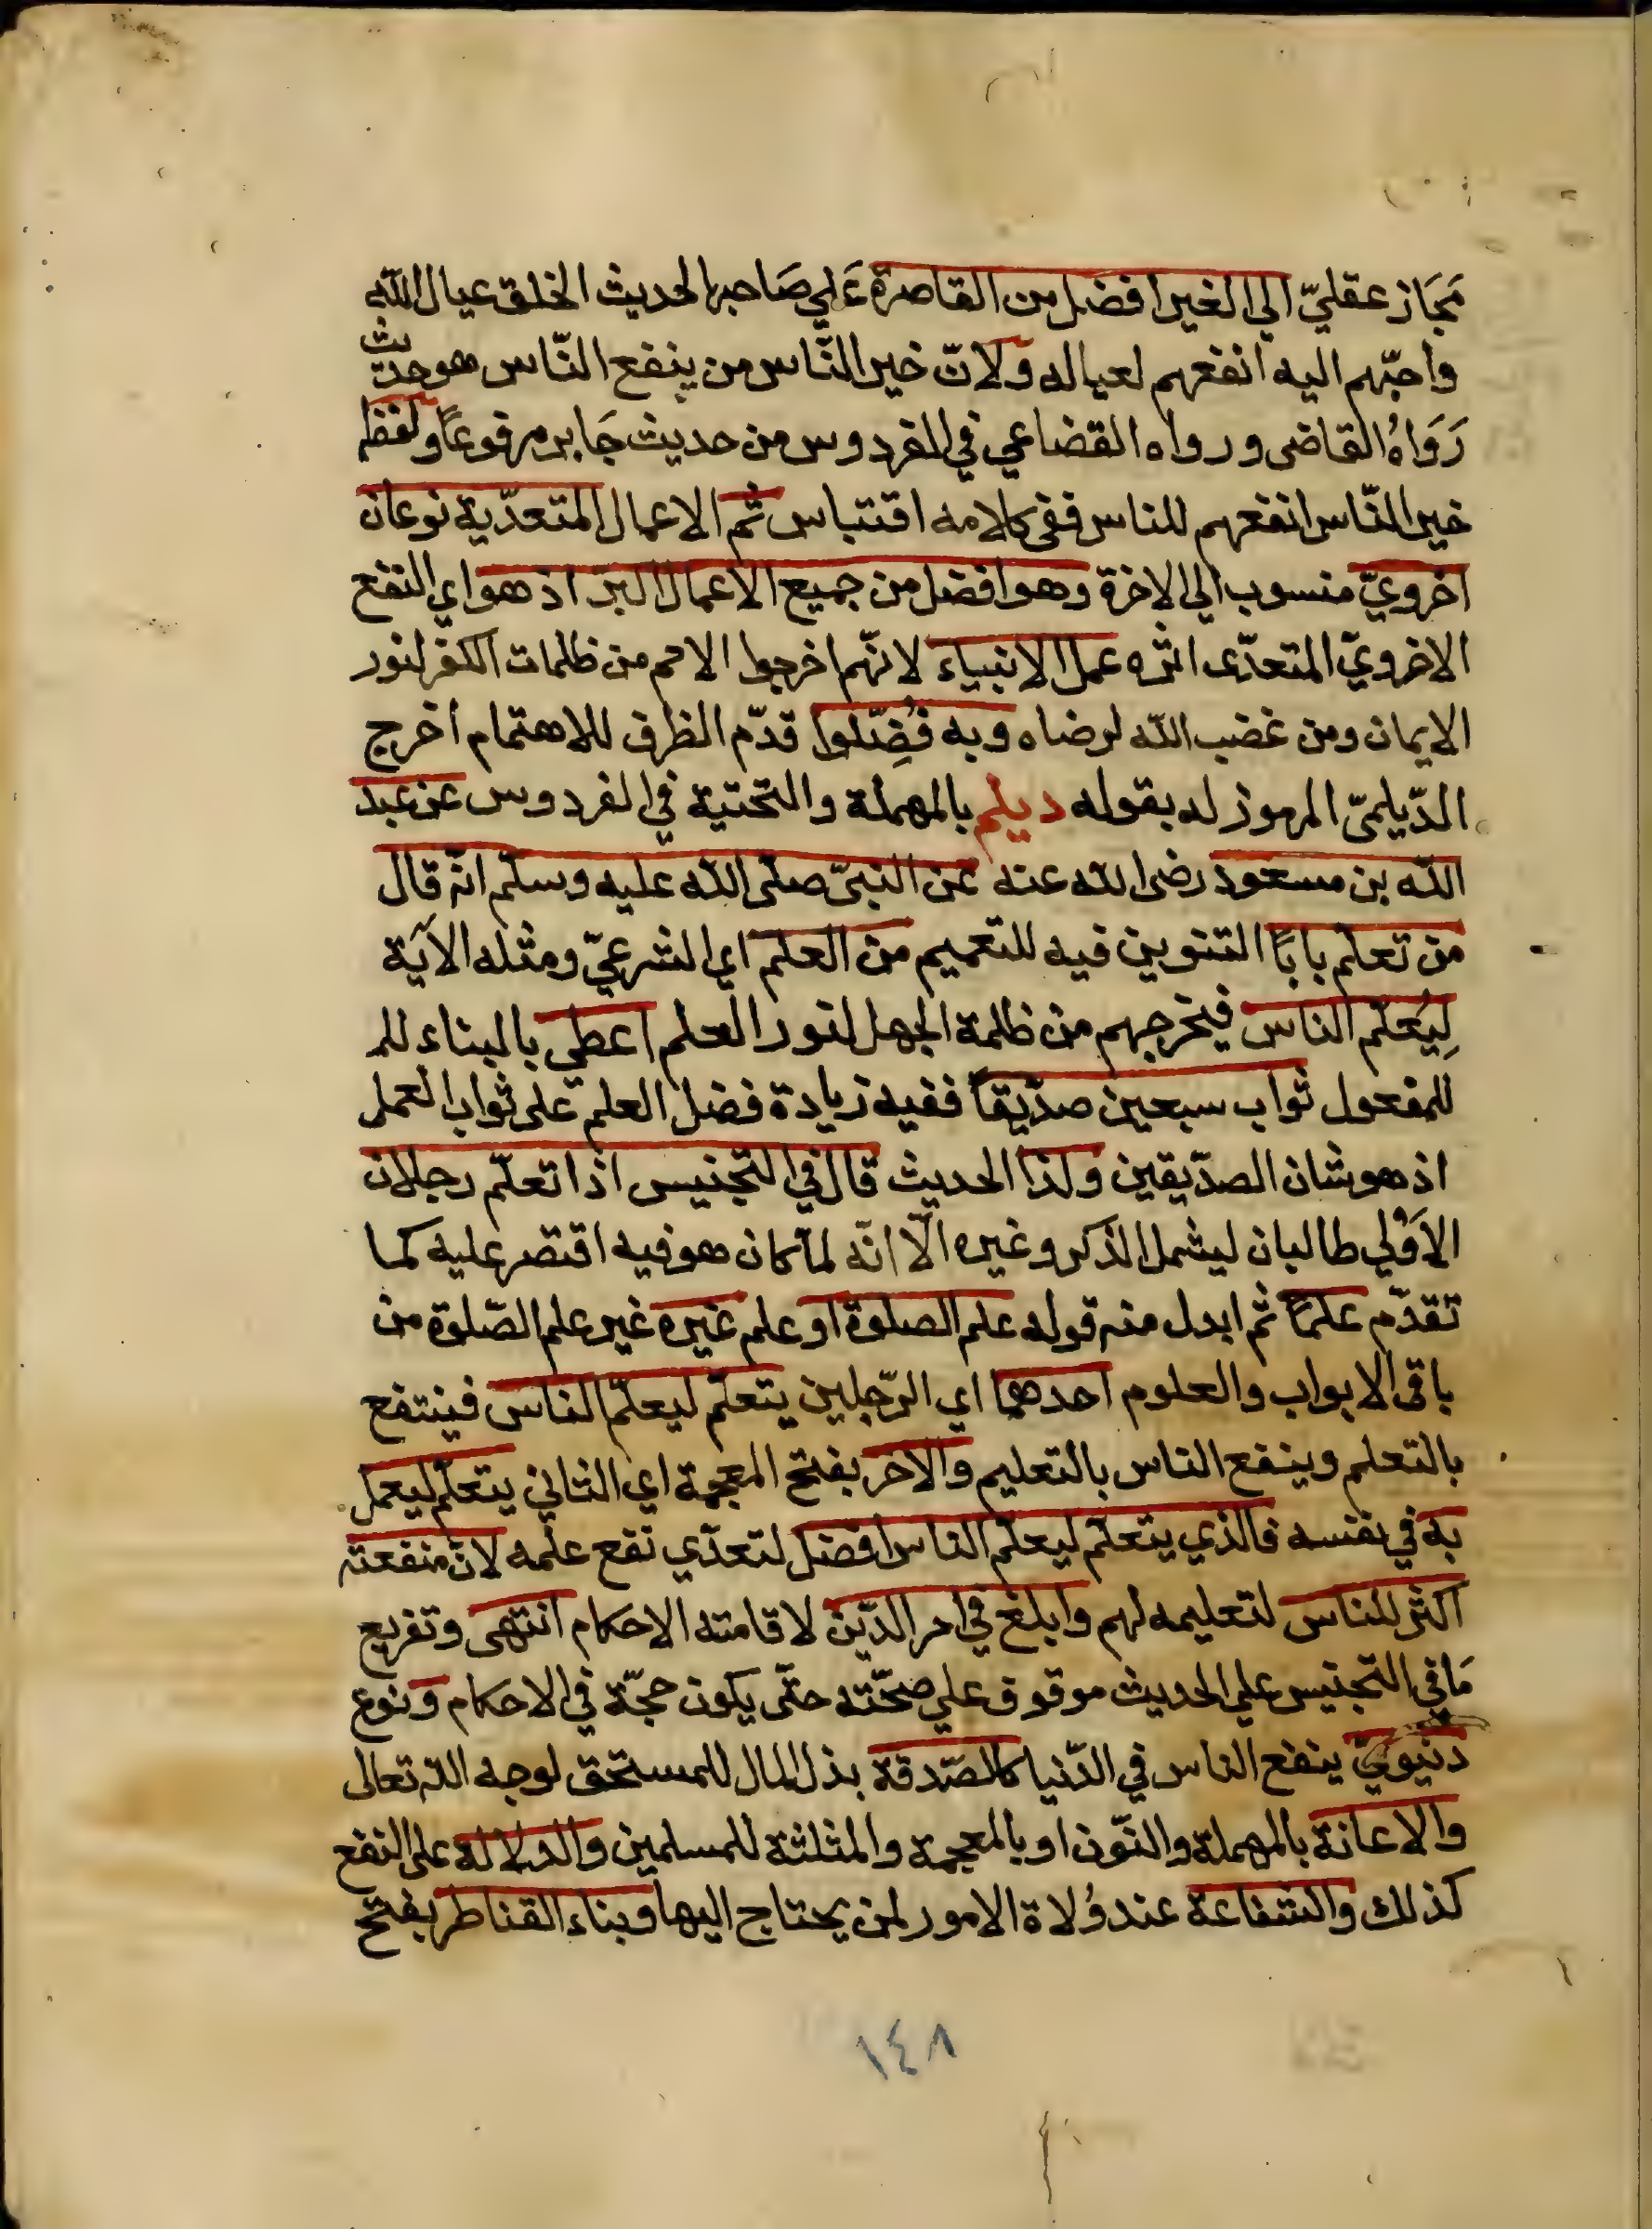 مَجَاز عقليّ الي الغير افضل من القاصرة عَلي صَاحبها لحديث الخلق عيال الله
واحبّهم اليه انفعهم لعياله ولانّ خير النّاس من ينفع النّاس هو حديث
رَوَاهُ القاضى ورواه القضاعي في الفردوس من حديث جَابر مرفوعًا ولفظه
خير النّاس انفعهم للناس ففى كلامه اقتباس ثم الاعمال المتعدّية نوعان
اخرويّ منسوب الي الاخرة وهو افضل من جميع الاعمال البرّ اذ هو اي النفع
الاخرويّ المتعدّى اثره عمل الانبياء لانّهم اخرجوا الامم من ظلمات الكفر لنور
الايمان ومن غضب الله لرضاه وبه فُضِّلوا قدّم الظرف للاهتمام اخرج
الدّيلميّ المرموز له بقوله ديلم بالمهملة والتحتية في الفردوس عن عبد
الله بن مسعود رضى الله عنه عن النبيّ صلّى الله عليه وسلّم انّه قال
من تعلّم بابًا التنوين فيه للتعميم من العلم اي الشرعيّ ومثله الآية
لِيُعلّم الناس فيخرجهم من ظلمة الجهل لنور العلم اعطي بالبناء للم
للمفعول ثواب سبعين صدّيقًا ففيه زيادة فضل العلم على ثواب العمل
اذ هو شان الصدّيقين ولذا الحديث قال في التجنيس اذا تعلّم رجلان
الاَولي طالبان ليشمل الذكر وغيره الّا انّه لمّا كان هو فيه اقتصر عليه كما
تقدّم علمًا ثم ابدل منه قوله علم الصلوة او علم غيره غير علم الصّلوة من
باقى الابواب والعلوم احدهما اي الرّجلين يتعلّم ليعلّم الناس فينتفع
بالتعلم وينفع الناس بالتعليم والاخر بفتح المعجمة اي الثاني يتعلّم ليعمل
به في نفسه فالذي يتعلّم ليعلّم الناس افضل لتعدّي نفع علمه لانّ منفعته
اكثر للناس لتعليمه لهم وابلغ في امر الدّين لاقامته الاحكام انتهى وتفريع
مَا في التجنيس علي الحديث موقوف علي صحّته حتّى يكون حجّة في الاحكام ونوع
دنيويّ ينفع الناس في الدّنيا كالصّدقة بذل المال للمستحق لوجه الله تعالى
والاعانة بالمهملة والنّون او بالمعجمة والمثلثة للمسلمين والدلالة على النفع
كذلك والشفاعة عند وُلاة الامور لمن يحتاج اليها وبناء القناطر بفتح
١٤٨